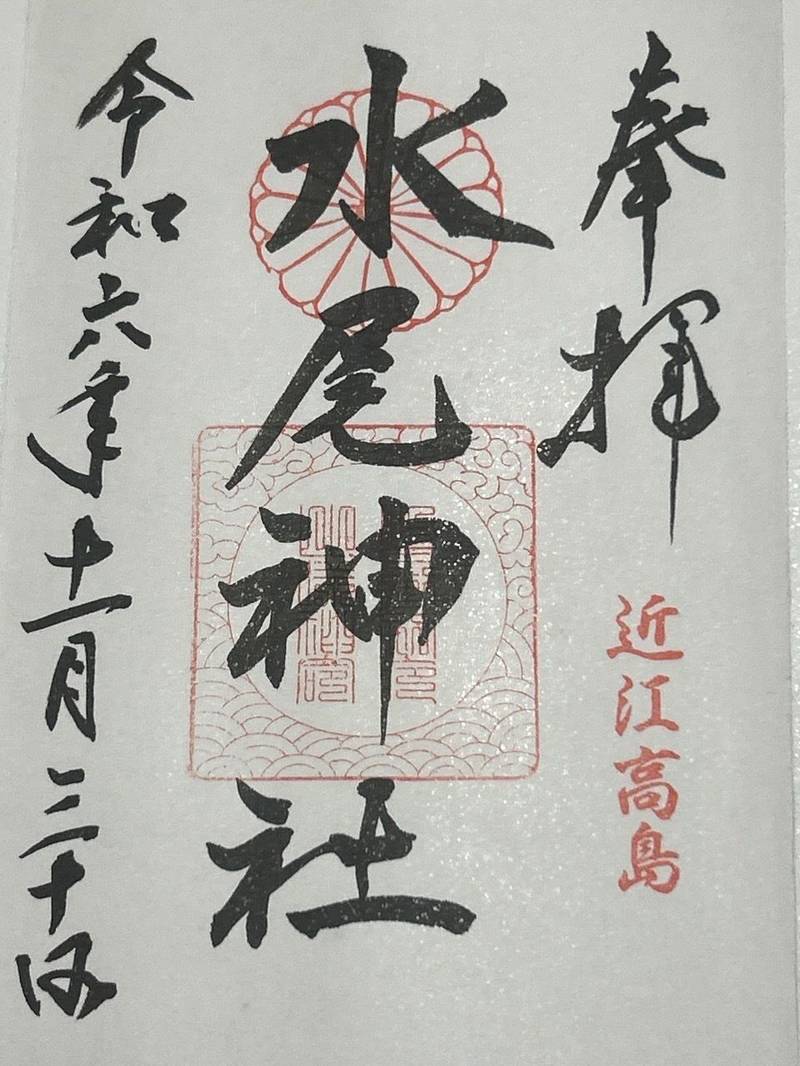 奉拝
近江高島
水尾神社
令和六年十一月三十日